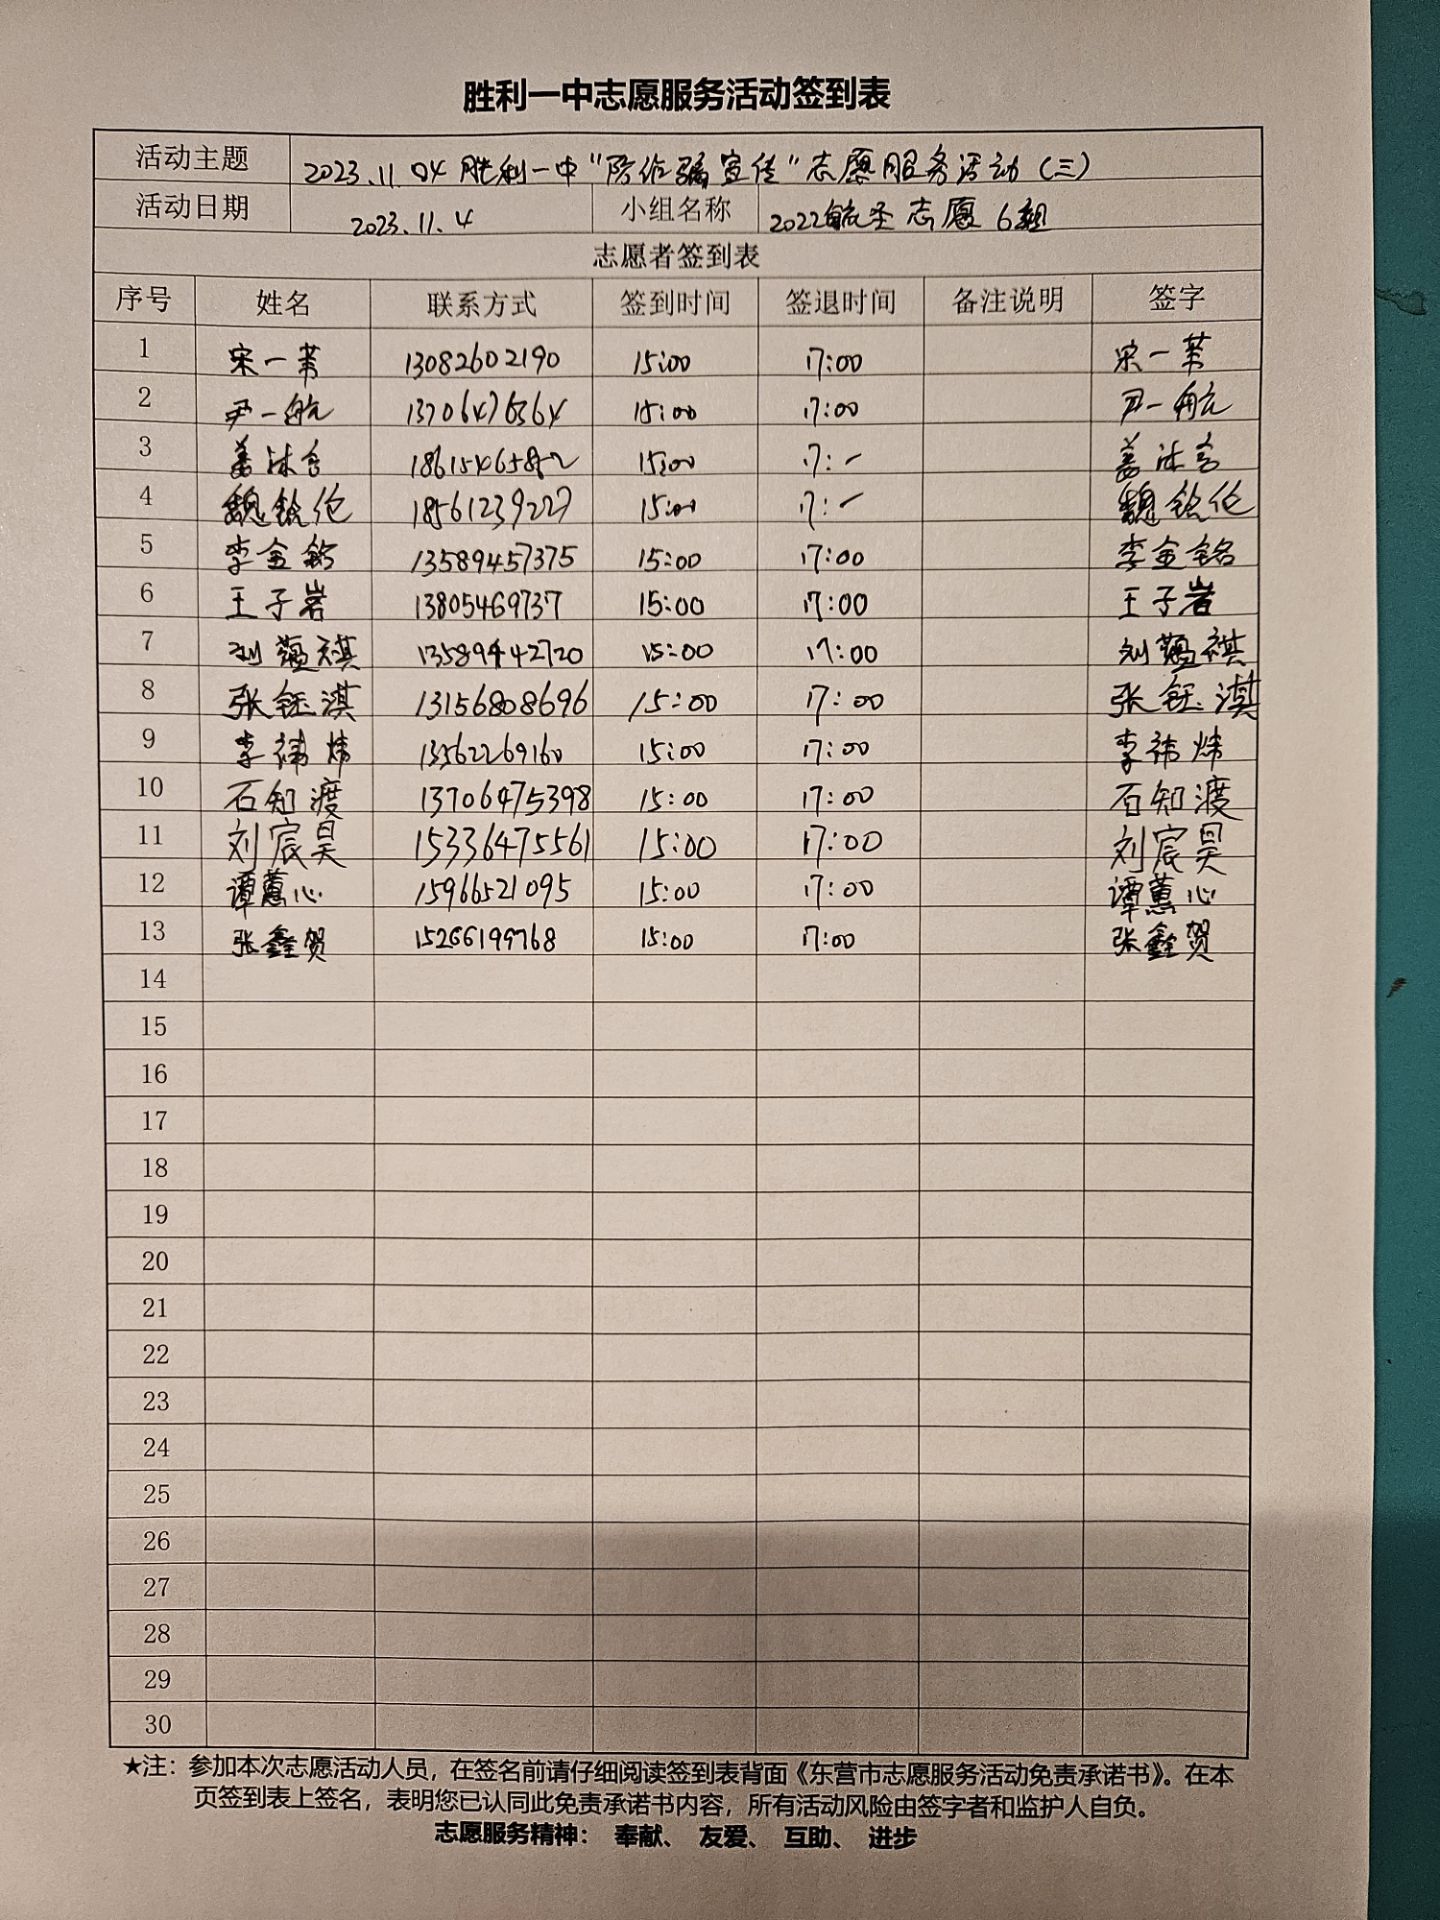 胜利一中志愿服务活动签到表
活动主题 2023.11.04 胜利一中“防诈骗宣传”志愿服务活动(三)
活动日期 2023.11.4 小组名称 2022航圣志愿6组
志愿者签到表
序号 姓名 联系方式 签到时间 签退时间 备注说明 签字
1 宋一芾 13082602190 15:00 17:00 宋一芾
2 尹一航 13706476364 15:00 17:00 尹一航
3 姜沐言 15:00 17:- 姜沐言
4 魏铭伦 18561239227 15:00 17:- 魏铭伦
5 李金铭 13589457375 15:00 17:00 李金铭
6 王子岩 13805469737 15:00 17:00 王子岩
7 刘蕴祺 13589442720 15:00 17:00 刘蕴祺
8 张钰淇 13156808696 15:00 17:00 张钰淇
9 李祎炜 13562269160 15:00 17:00 李祎炜
10 石知渡 13706475398 15:00 17:00 石知渡
11 刘宸昊 15336475561 15:00 17:00 刘宸昊
12 谭蕙心 15966521095 15:00 17:00 谭蕙心
13 张鑫贺 15266199768 15:00 17:00 张鑫贺
14
15
16
17
18
19
20
21
22
23
24
25
26
27
28
29
30
★注：参加本次志愿活动人员，在签名前请仔细阅读签到表背面《东营市志愿服务活动免责承诺书》。在本
页签到表上签名，表明您已认同此免责承诺书内容，所有活动风险由签字者和监护人自负。
志愿服务精神： 奉献、 友爱、 互助、 进步